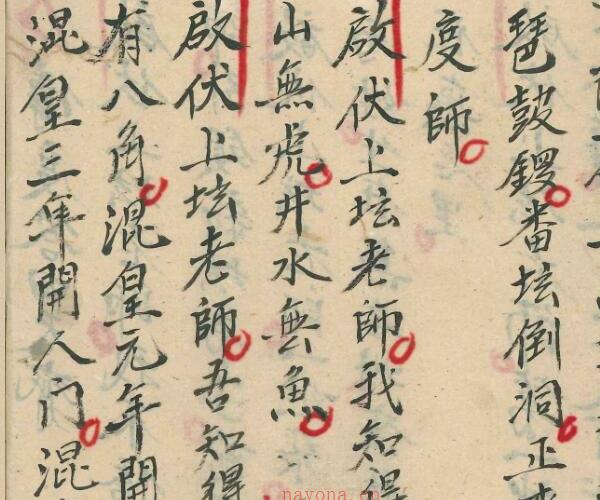 琶鼓鑼番坛倒洞正
度師
啟伏上坛老師我知得
山無虎井水無魚
啟伏上坛老師吾知得
有八角混皇元年開
混皇三年開人门混
nayona.cn